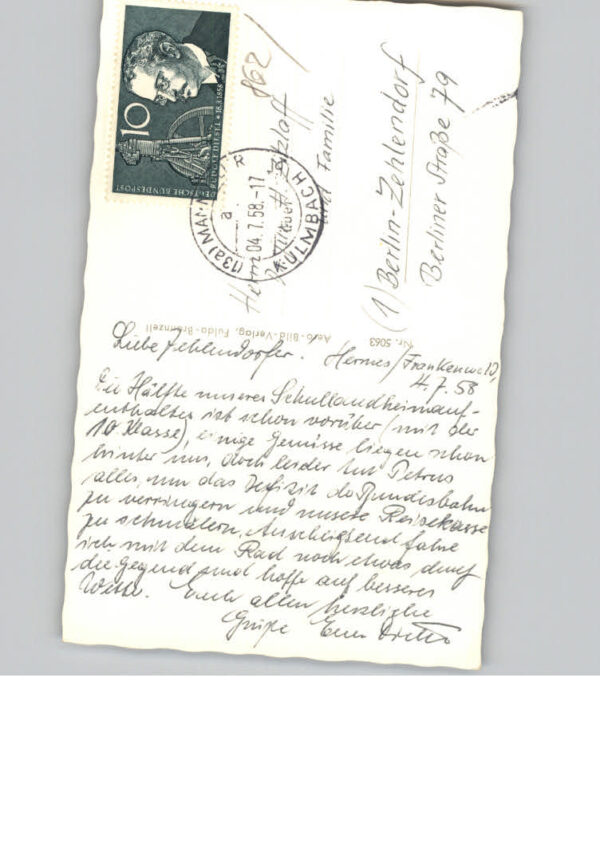 Liebe Zehlendorfer. Hermes/Frankenwald,
4.7.58
Die Hälfte unseres Schullandheimauf-
enthaltes ist schon vorüber (mit der
10 Klasse), einige Genüsse liegen schon
hinter uns, doch leider tut Petrus
alles, um das Defizit der Bundesbahn
zu verringern und unsere Reisekasse
zu schmälern. Anschließend fahre
ich mit dem Rad noch etwas durch
die Gegend und hoffe auf besseres
Wetter. Euch allen herzliche
Grüße Euer
10
DEUTSCHE BUNDESPOST
RUDOLF DIESEL * 18.3.1858
862
(13a) MANNHEIM
04.7.58.-17
a
KULMBACH
Herrn
und Familie
(1) Berlin-Zehlendorf
Berliner Straße 79
Aero-Bild-Verlag, Fulda-Bronnzell
Nr. 5063